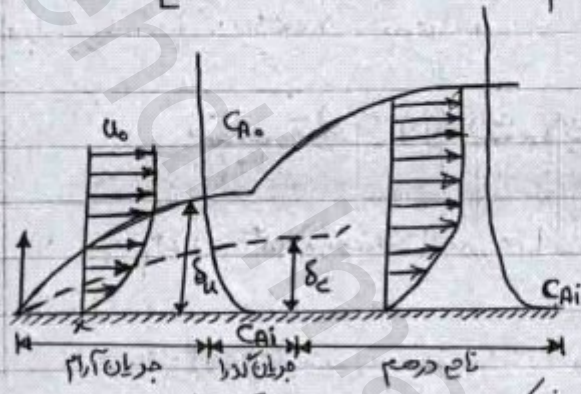 u₀
C_A₀
δ_u
δ_c
C_Ai
C_Ai
x
جریان آرام
جریان گذرا
ناحیه درهم